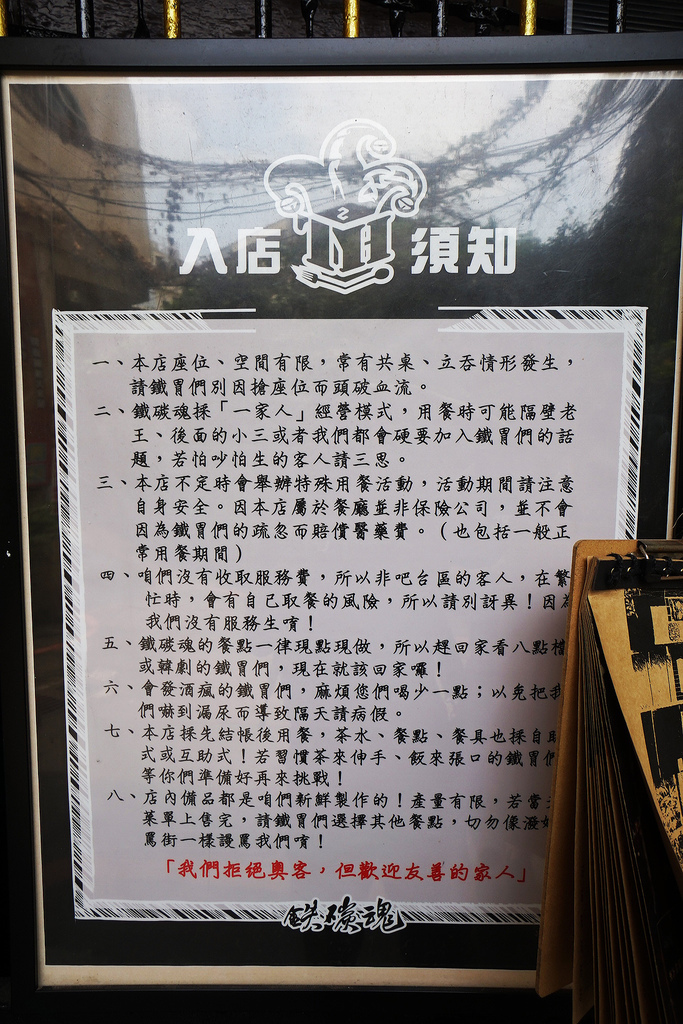 入店 須知
一、本店座位、空間有限，常有共桌、立吞情形發生，
請鐵胃們別因搶座位而頭破血流。
二、鐵碳魂採「一家人」經營模式，用餐時可能隔壁老
王、後面的小三或者我們都會硬要加入鐵胃們的話
題，若怕吵怕生的客人請三思。
三、本店不定時會舉辦特殊用餐活動，活動期間請注意
自身安全。因本店屬於餐廳並非保險公司，並不會
因為鐵胃們的疏忽而賠償醫藥費。（也包括一般正
常用餐期間）
四、咱們沒有收取服務費，所以非吧台區的客人，在繁
忙時，會有自己取餐的風險，所以請別訝異！因為
我們沒有服務生唷！
五、鐵碳魂的餐點一律現點現做，所以趕回家看八點檔
或韓劇的鐵胃們，現在就該回家囉！
六、會發酒瘋的鐵胃們，麻煩您們喝少一點；以免把我
們嚇到漏尿而導致隔天請病假。
七、本店採先結帳後用餐，茶水、餐點、餐具也採自助
式或互助式！若習慣茶來伸手、飯來張口的鐵胃們
等你們準備好再來挑戰！
八、店內備品都是咱們新鮮製作的！產量有限，若當
菜單上售完，請鐵胃們選擇其他餐點，切勿像潑
罵街一樣謾罵我們唷！
「我們拒絕奧客，但歡迎友善的家人」
鉄碳魂